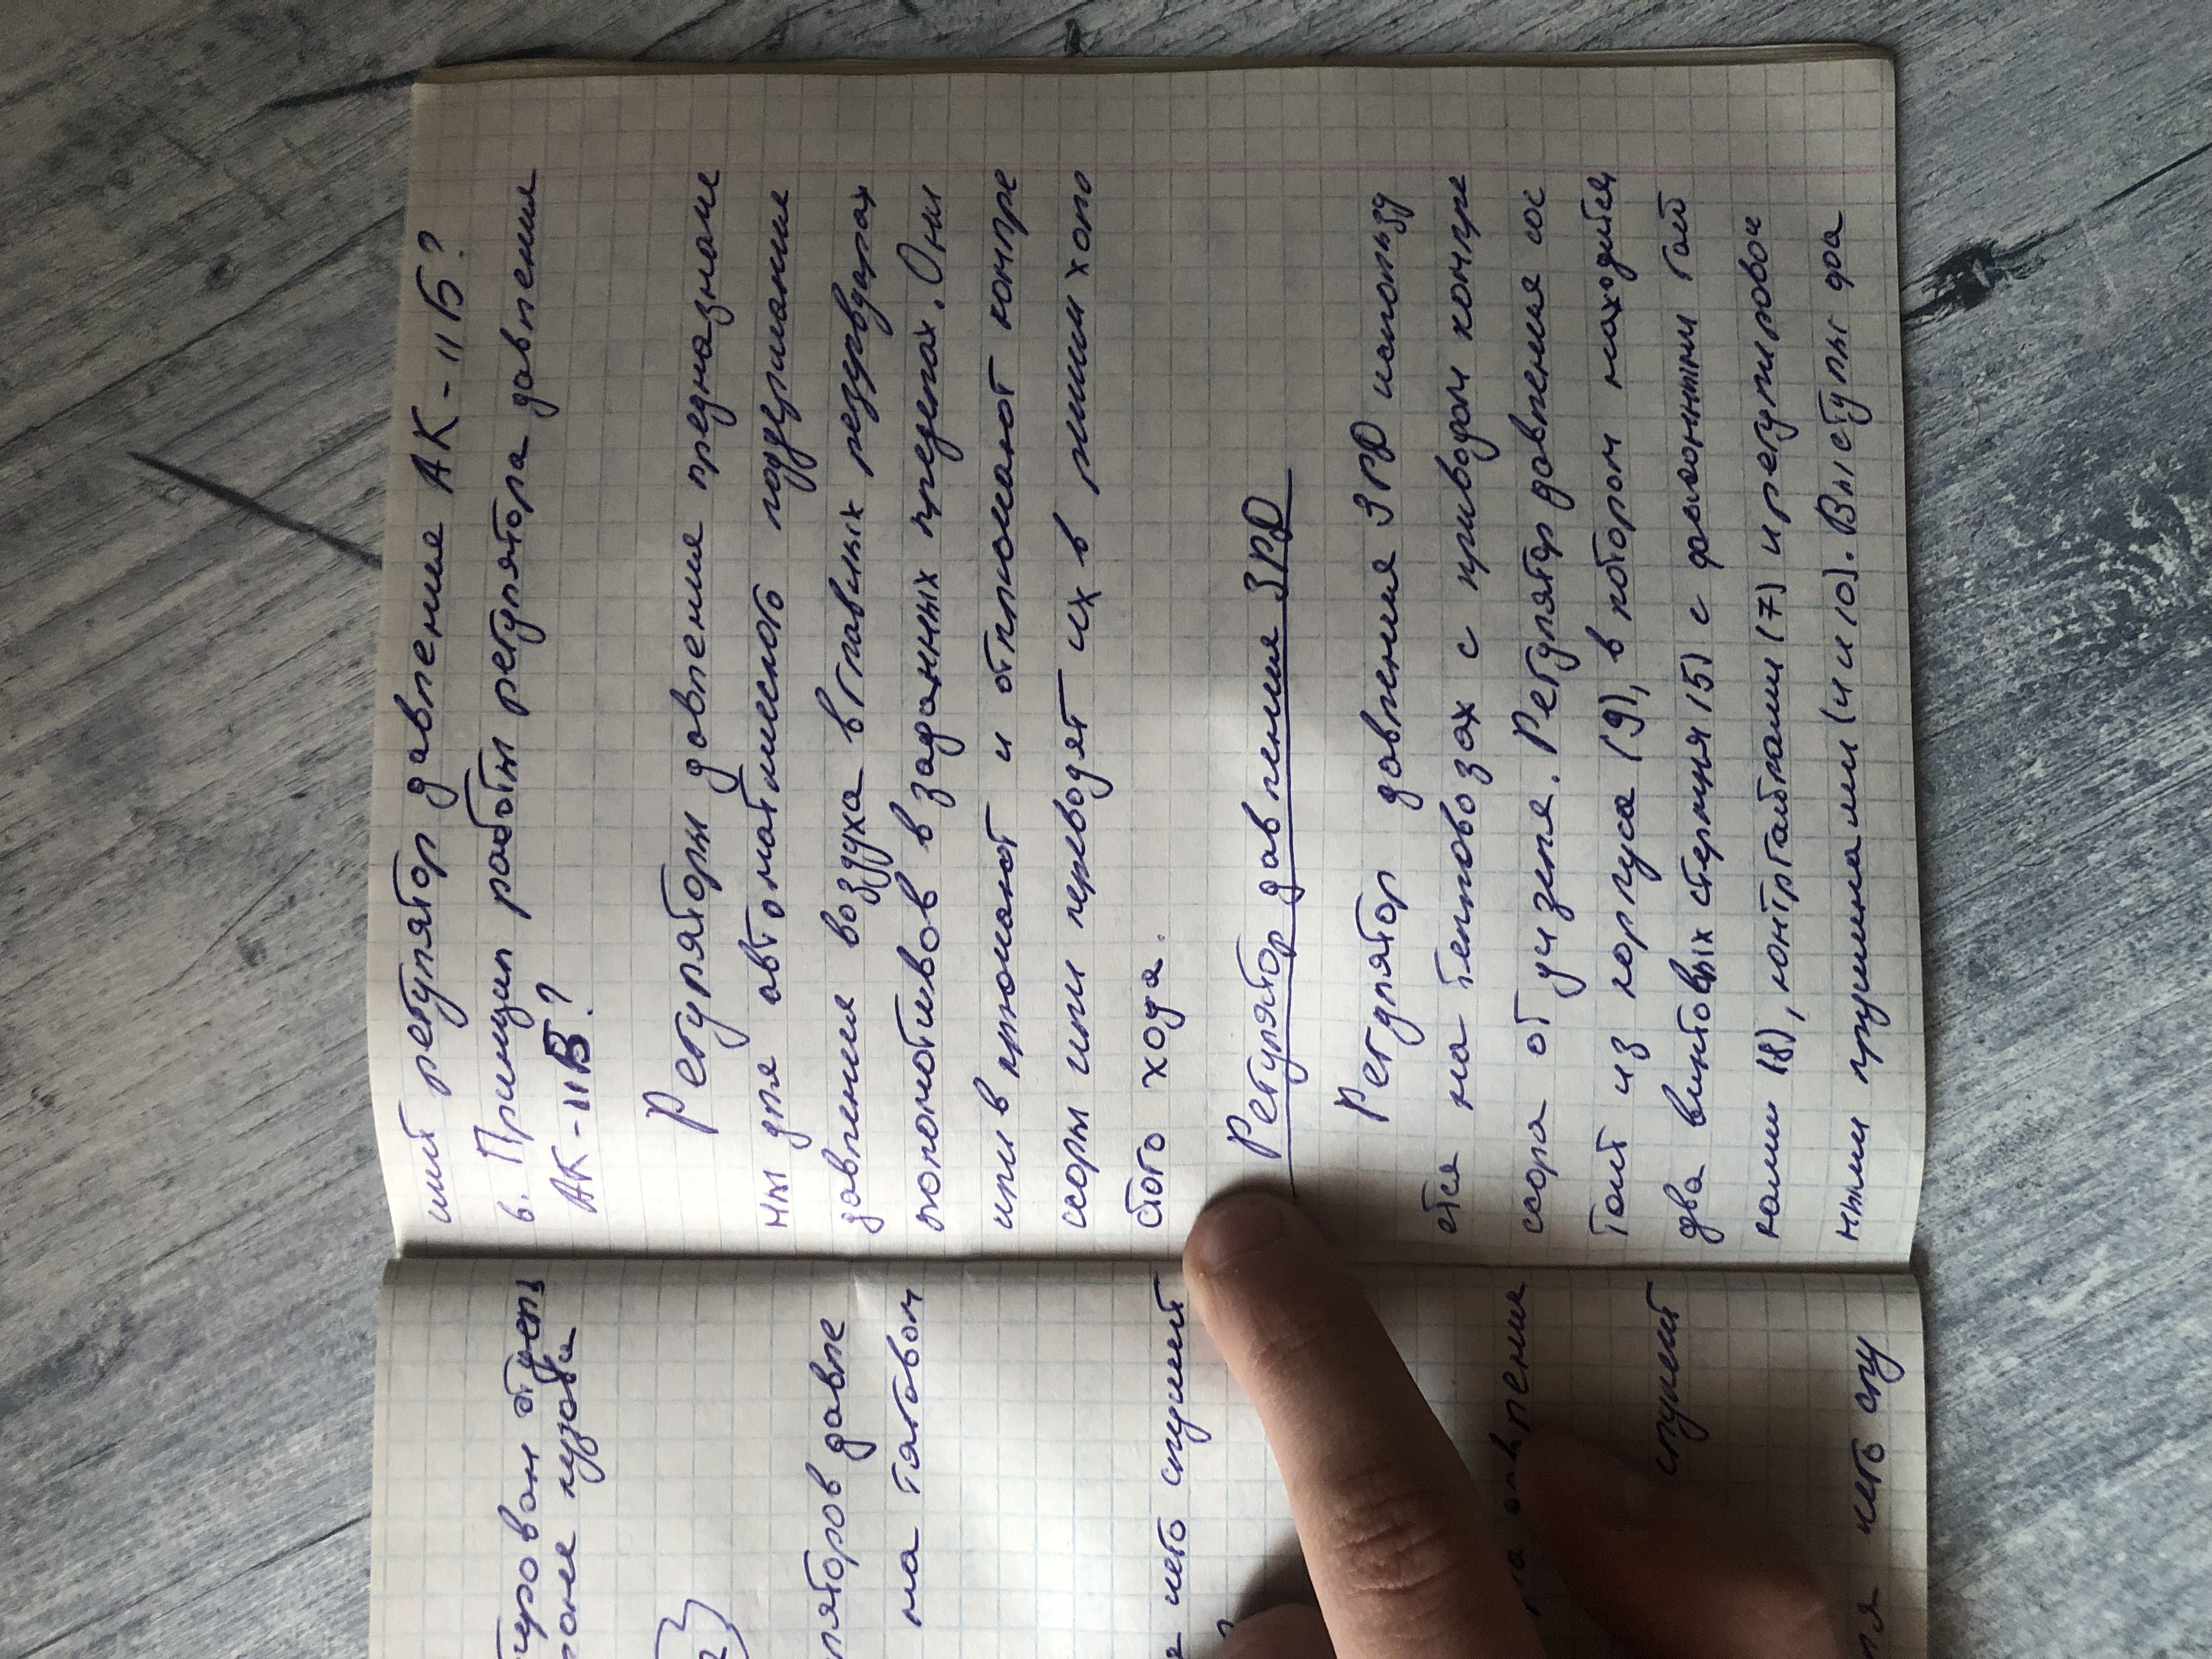 ший регулятор давления АК-11Б?
в. Принцип работы регулятора давления
АК-11Б?
Регуляторы давление предназначе
ны для автоматического поддержание
давления воздуха в главных резервуарах
локомотивов в заданных пределах. Они
или включают и отключают компре
ссоры или переводят их в режим холо
стого хода.
Регулятор давления 3РД
Регулятор давления 3РД использу
ется на тепловозах с приводом компре
ссора от дизеля. Регулятор давления сос
тоит из корпуса (9), в котором находится,
два винтовых стержня (5) с фасонными гай
ками (8), контргайками (7) и регулировоч
ными пружинами (4 и 10). Выступы два
кузова
ляторов давле
на тяговом
него служит
служит
него слу